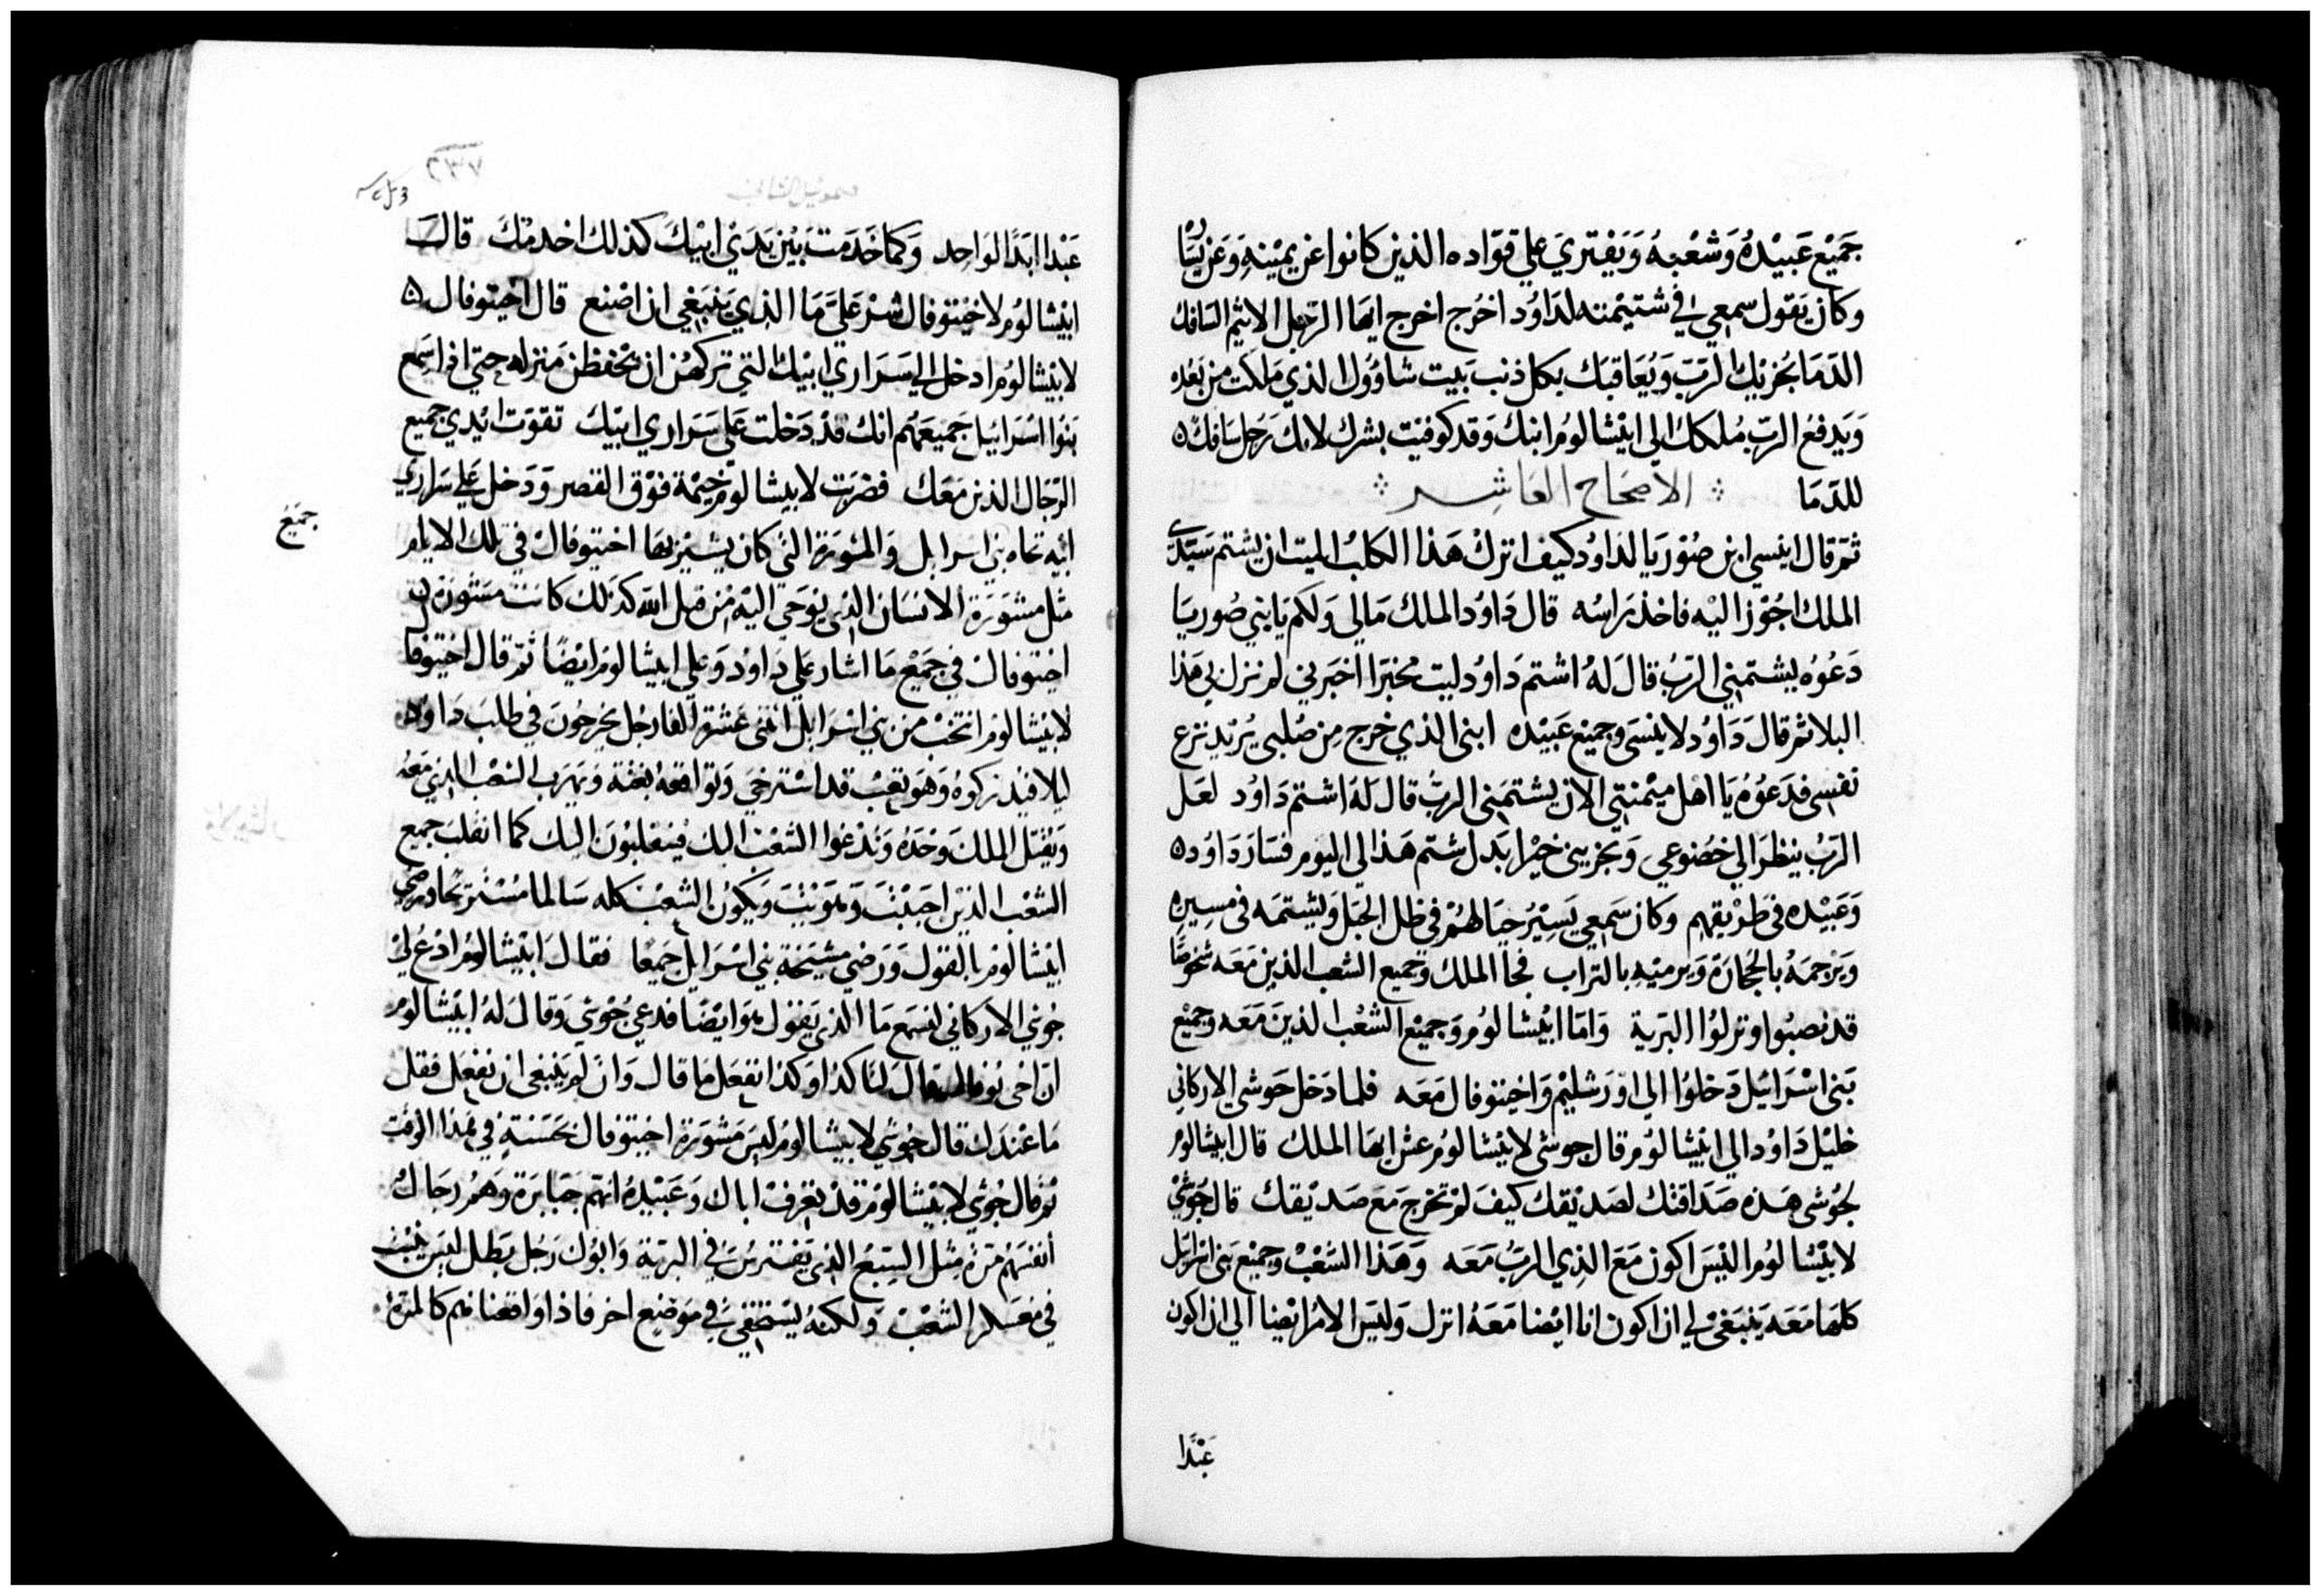 جميع عبيده وشعبه ويفتري علي قواده الذين كانوا عن يمينه وعن يساره
وكان يقول سمعي في شتيمته لداوود اخرج اخرج ايها الرجل الاثيم السافك
الدما يجزيك الرب ويعاقبك بكل ذنب بيت شاوول الذي ملكت من بعده
ويدفع الرب ملكك الي ابيشالوم ابنك وقد كوفيت بشرك لانك رجل سافك
للدما الاصحاح العاشر
ثم قال ابيسي ابن صوريا لداود كيف اترك هذا الكلب الميت ان يشتم سيدي
الملك اجوز اليه فاخذ راسه قال داود الملك مالي ولكم يا بني صوريا
دعوه يشتمني الرب قال له اشتم داود ليت مخبرا اخبرني لم نزل بي هذا
البلا ثم قال داود لابيسي وجميع عبيده ابني الذي خرج من صلبي يريد نزع
نفسي فدعوه يا اهل ميمنتي الان يشتمني الرب قال له اشتم داود لعل
الرب ينظر الي خضوعي ويجزيني خيرا بدل شتم هذا لي اليوم فسار داود
وعبيده في طريقهم وكان سمعي يسير حيالهم في ظل الجبل ويشتمه في مسيره
ويرجمه بالحجارة ويرميه بالتراب فجا الملك وجميع الشعب الذين معه
قد نصبوا ونزلوا البرية واما ابيشالوم وجميع الشعب الذين معه وجميع
بني اسرائيل دخلوا الي اورشليم واخيتوفال معه فلما دخل حوشي الاركاني
خليل داود الي ابيشالوم قال حوشي لابيشالوم عش ايها الملك قال ابيشالوم
لحوشي هذه صداقتك لصديقك كيف لم تخرج مع صديقك قال حوشي
لابيشالوم اليس اكون مع الذي الرب معه وهذا الشعب وجميع بني اسرايل
كلها معه ينبغي لي ان اكون انا ايضا معه انزل وليس الامر ايضا الي ان اكون
عبدا
٢٣٧
عبدا ابدا لواحد وكما خدمت بين يدي ابيك كذلك اخدمك قال
ابيشالوم لاخيتوفال شر علي ما الذي ينبغي ان اصنع قال اخيتوفال
لابيشالوم ادخل الي سراري ابيك التي تركهن ان يحفظن منزله حتي اذا سمع
بنوا اسرائيل جميعهم انك قد دخلت علي سراري ابيك تقوت ايدي جميع
الرجال الذين معك فضربت لابيشالوم خيمة فوق القصر ودخل علي سراري
ابيه تجاه بني اسرايل والمشورة التي كان يشير بها اخيتوفال في تلك الايام
جميع
مثل مشورة الانسان الذي يوحي اليه من قبل الله كذلك كانت مشورة
اخيتوفال في جميع ما اشار علي داود وعلي ابيشالوم ايضا ثم قال اخيتوفا
لابيشالوم انتخب من بني اسرايل اثني عشرة الفا رجل يخرجون في طلب داود
ليلا فيدركوه وهو تعب قد استرخي وتواقعه بغتة ويهرب الشعب الذي معه
ويقتل الملك وحده وتدعوا الشعب اليك فينقلبون اليك كما انقلب جميع
الشعب الذين احببت ويكون الشعب كله سالما
ابيشالوم بالقول ورضي مشيخة بني اسرايل جميعا فقال ابيشالوم ادع لي
حوشي الاركاني لنسمع ما الذي يقول هو ايضا فدعي حوشي وقال له ابيشالوم
ان اخيتوفال قال لنا كدا وكدا نفعل ما قال وان لم ينبغي ان نفعل فقل
ما عندك قال حوشي لابيشالوم ليس مشورة اخيتوفال بحسنة في هذا الوقت
ثم قال حوشي لابيشالوم قد تعرف اباك وعبيده انهم جبابرة وهم رجال
انفسهم مرة مثل السبع الذي يفترس في البرية وابوك رجل بطل ليس يبيت
في معسكر الشعب ولكنه يستخفي في موضع اخر فاذا واقعناهم كالمرة